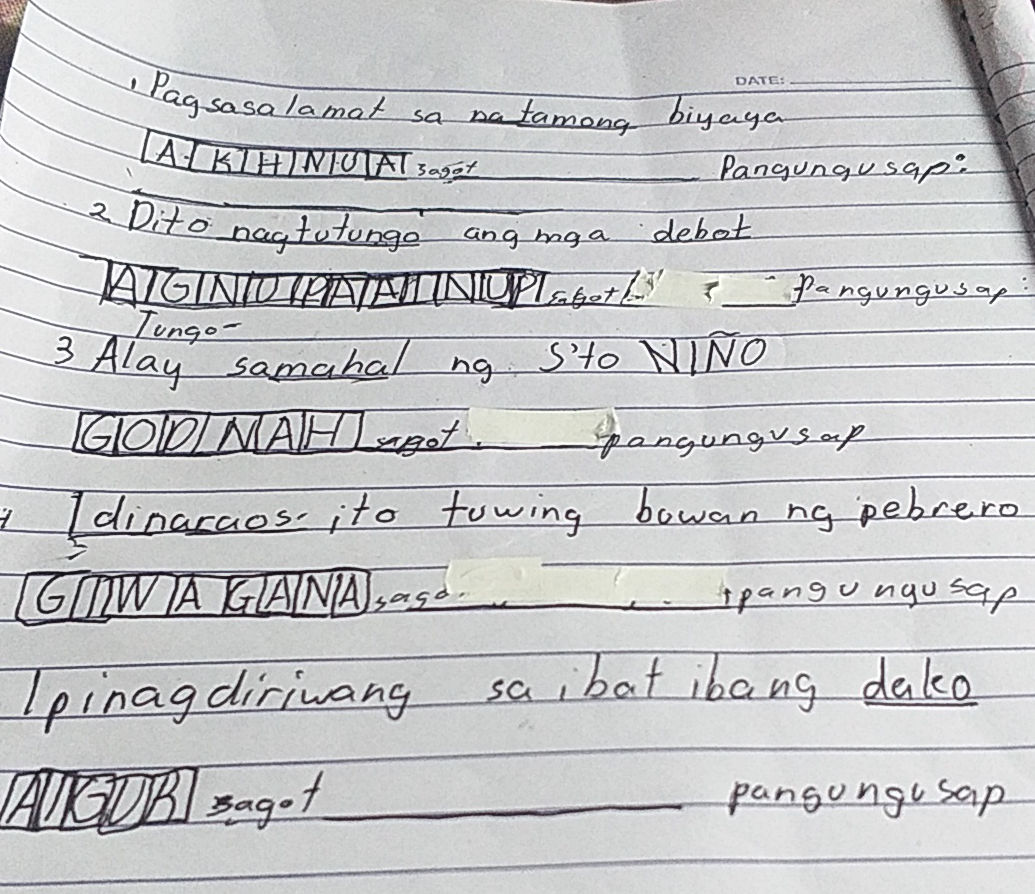 DATE:
1 Pagsasalamat sa natamong biyaya
A K H N U A sagot Pangungusap:
2 Dito nagtutungo ang mga debot
sagot Pangungusap:
Tungo-
3 Alay samahal ng S'to NIÑO
G O D N A H sagot pangungusap
4 Idinaraos ito tuwing bowan ng pebrero
5
G I W A G A N A sago pangungusap
Ipinagdiriwang sa ibat ibang dako
sagot pangungusap